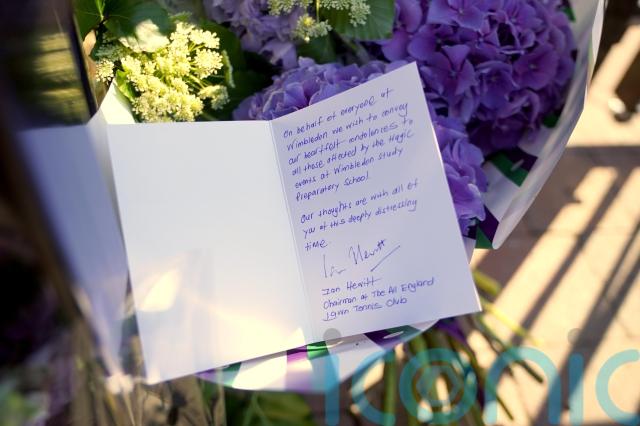 On behalf of everyone at
Wimbledon we wish to convey
our heartfelt condolences to
all those affected by the tragic
events at Wimbledon study
Preparatory School.
Our thoughts are with all of
you at this deeply distressing
time.
Ian Hewitt
Ian Hewitt
Chairman of The All England
Lawn Tennis Club
iconic